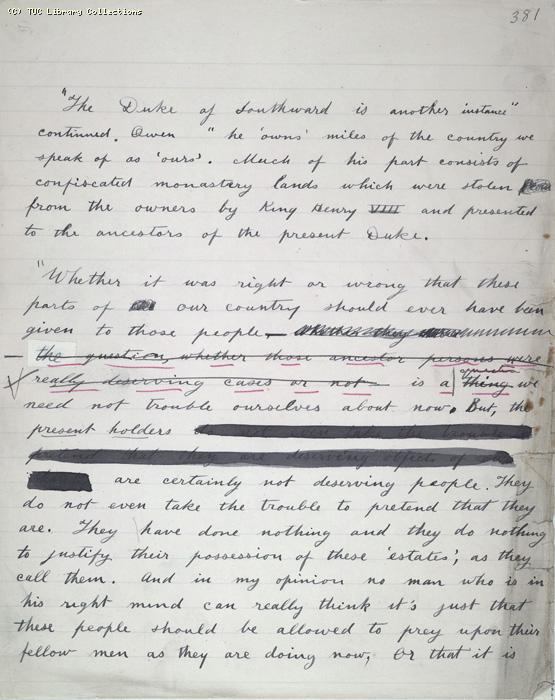 (C) TUC Library Collections
381
"The Duke of Southward is another instance"
continued. Owen " he 'owns' miles of the country we
speak of as 'ours'. Much of his part consists of
confiscated monastery lands which were stolen
from the owners by King Henry VIII and presented
to the ancestors of the present Duke.
"Whether it was right or wrong that these
parts of our country should ever have been
given to those people,
the question, whether those ancestor persons were
question
really deserving cases or not is a thing we
need not trouble ourselves about now. But, the
present holders
pretend that they are deserving objects of
are certainly not deserving people. They
do not even take the trouble to pretend that they
are. They have done nothing and they do nothing
to justify their possession of these 'estates', as they
call them. And in my opinion no man who is in
his right mind can really think it's just that
these people should be allowed to prey upon their
fellow men as they are doing now, Or that it is